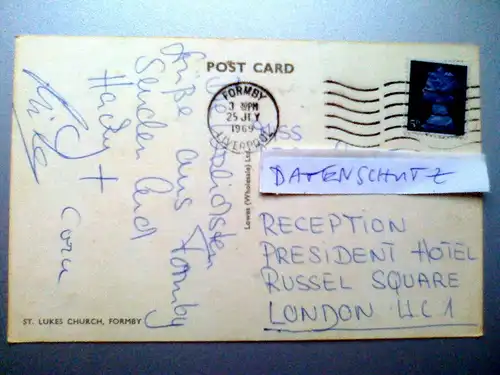 POST CARD
Die herzlichsten
Grüße aus Formby
Senden Euch
Hady +
Cora
FORMBY
3 30PM
25 JLY
1969
LIVERPOOL
ISS
DATENSCHUTZ
RECEPTION
PRESIDENT HOTEL
RUSSEL SQUARE
LONDON WC1
ST. LUKES CHURCH, FORMBY